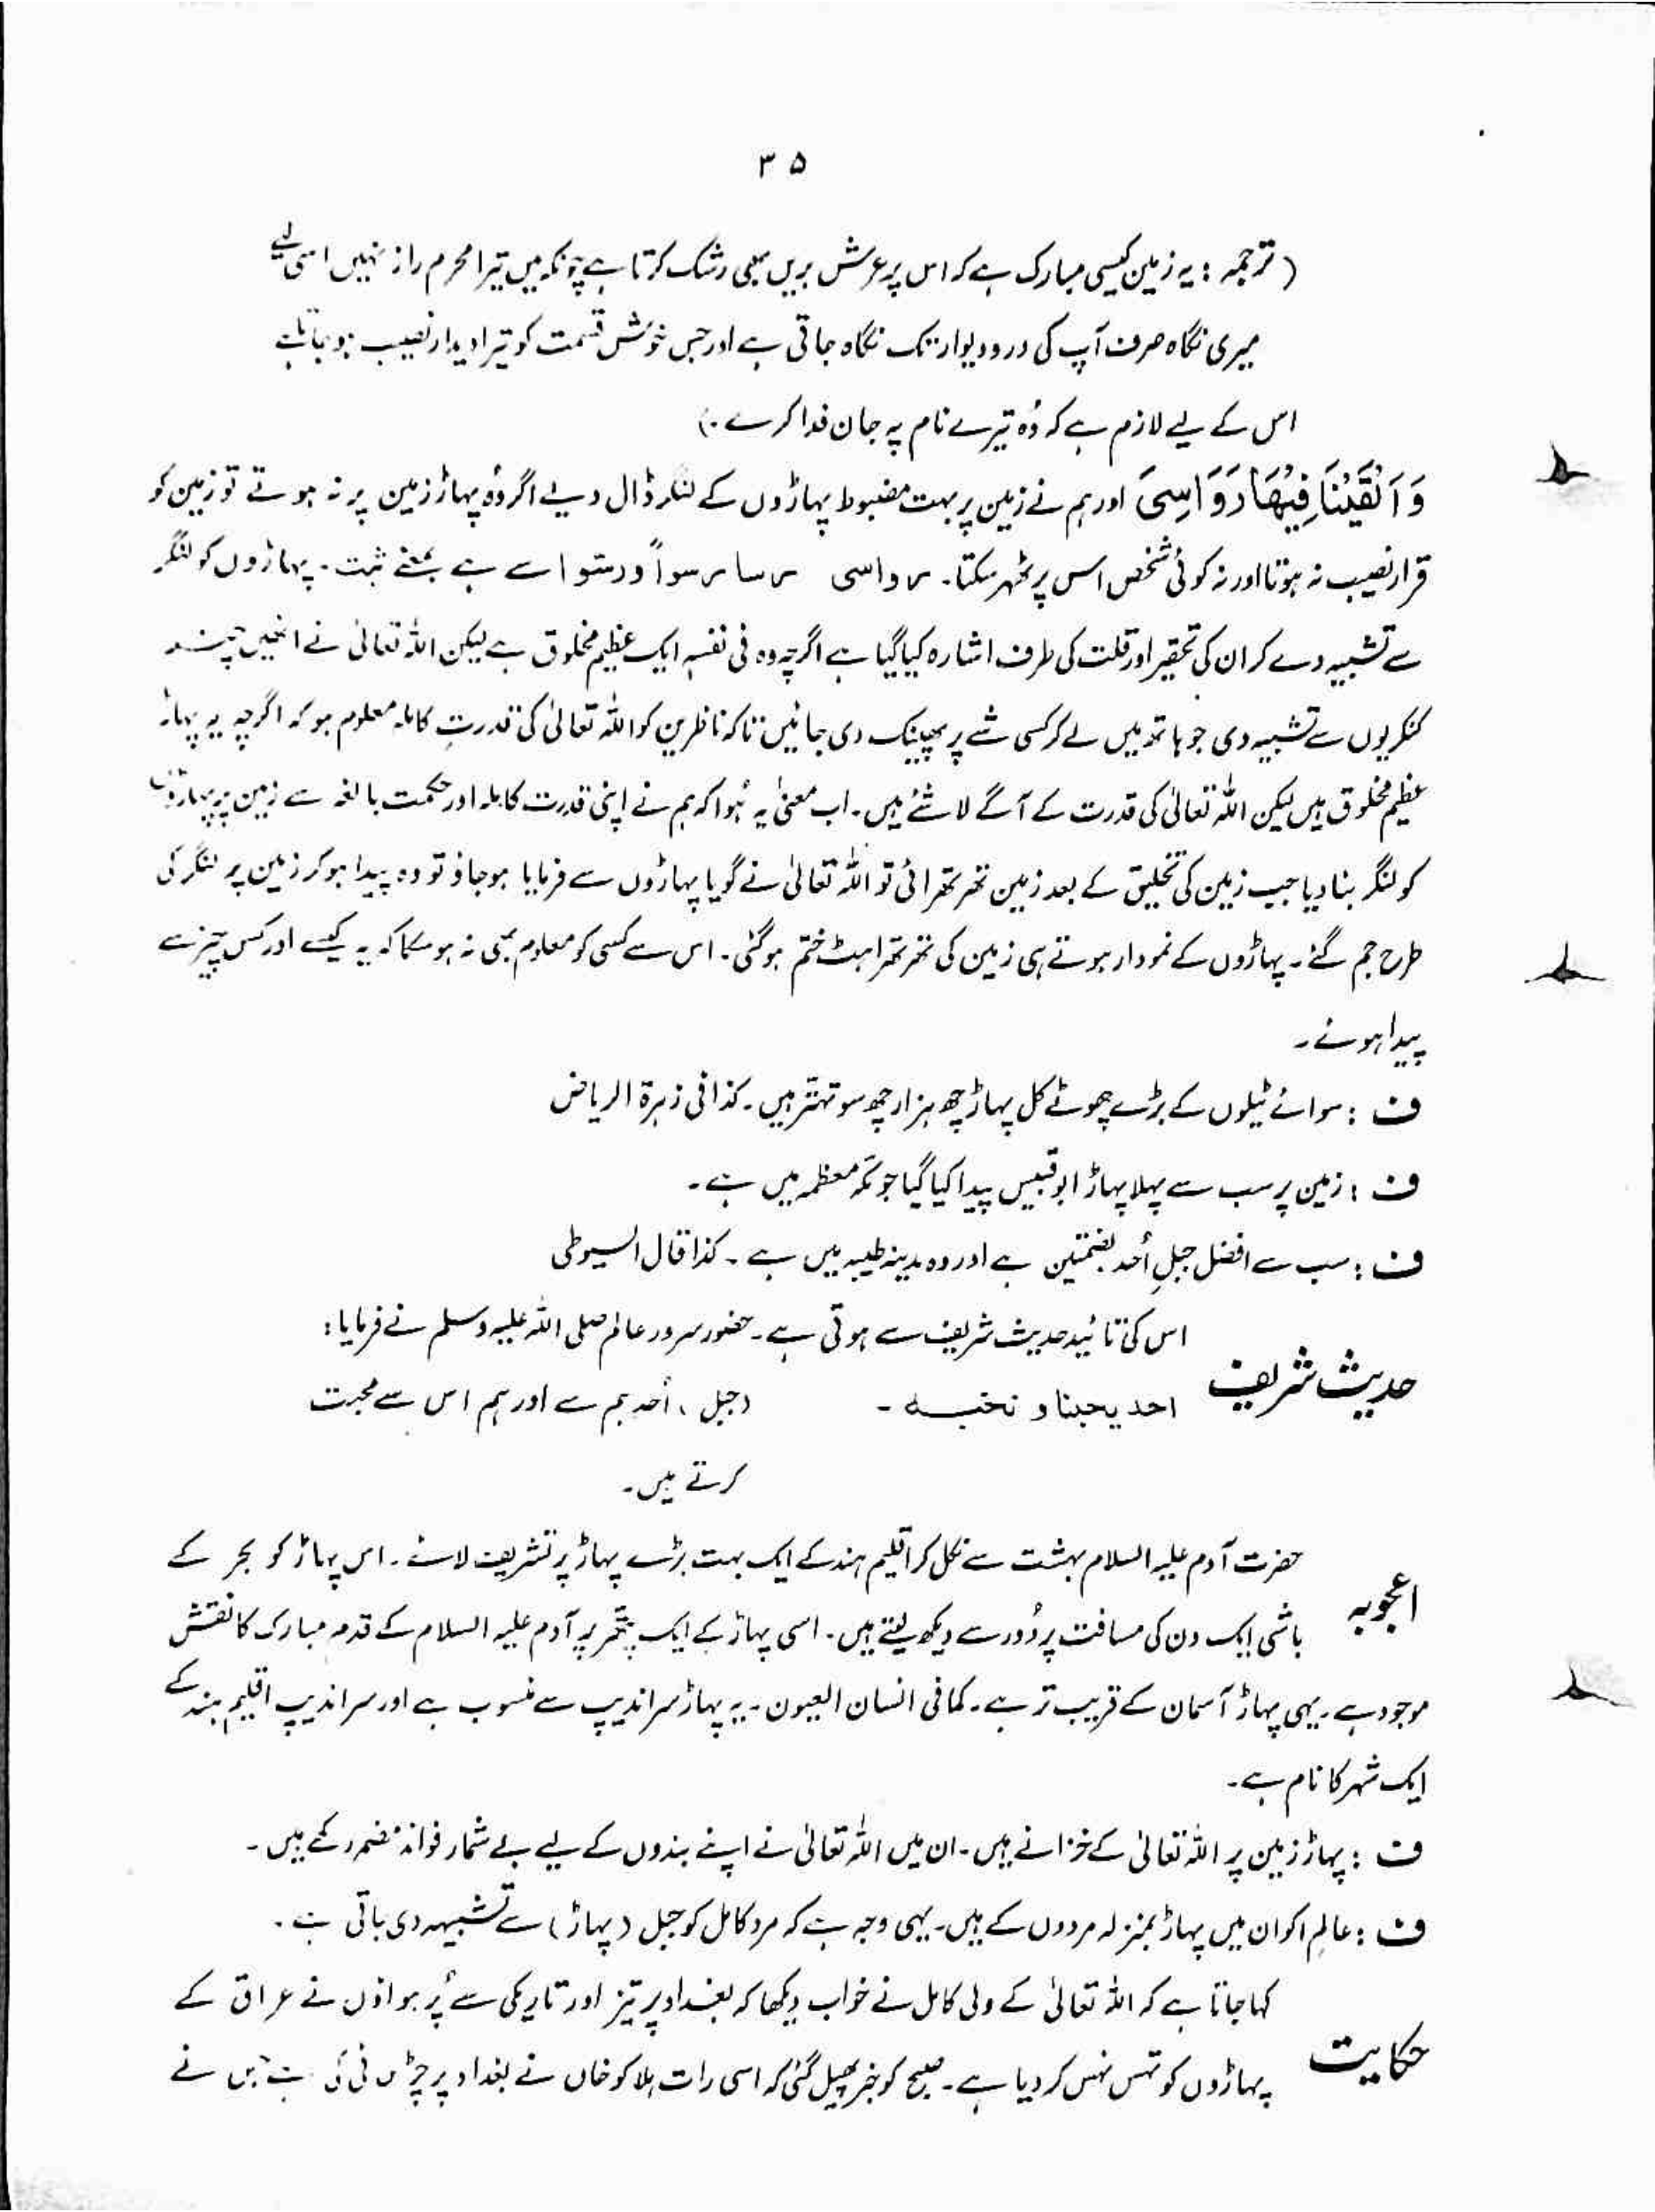 ۳۵
(ترجمہ: یہ زمین کیسی مبارک ہے کہ اس پر عرش بریں بھی رشک کرتا ہے چونکہ میں تیرا محرم راز نہیں اسی لیے
میری نگاہ صرف آپ کی در و دیوار تک نگاہ جاتی ہے اور جس خوش قسمت کو تیرا دیدار نصیب ہو جاتا ہے
اس کے لیے لازم ہے کہ وُہ تیرے نام پہ جان فدا کرے۔)
وَاَلْقَیْنَا فِیْهَا رَوَاسِیَ اور ہم نے زمین پر بہت مضبوط پہاڑوں کے لنگر ڈال دیے اگر وُہ پہاڑ زمین پر نہ ہوتے تو زمین کو
قرار نصیب نہ ہوتا اور نہ کوئی شخص اس پر ٹھہر سکتا۔ رواسی رسا رسواً ورستوا سے ہے بمعنے ثبت۔ پہاڑوں کو لنگر
سے تشبیہ دے کر ان کی تحقیر اور قلت کی طرف اشارہ کیا گیا ہے اگرچہ وہ فی نفسہٖ ایک عظیم مخلوق ہے لیکن اللہ تعالیٰ نے انھیں چند
کنکریوں سے تشبیہ دی جو ہاتھ میں لے کر کسی شے پر پھینک دی جائیں تاکہ ناظرین کو اللہ تعالیٰ کی قدرتِ کاملہ معلوم ہو کہ اگرچہ یہ پہاڑ
عظیم مخلوق ہیں لیکن اللہ تعالیٰ کی قدرت کے آگے لا شئے ہیں۔ اب معنیٰ یہ ہُوا کہ ہم نے اپنی قدرت کاملہ اور حکمت بالغہ سے زمین پر پہاڑوں
کو لنگر بنا دیا جب زمین کی تخلیق کے بعد زمین تھرتھرائی تو اللہ تعالیٰ نے گویا پہاڑوں سے فرمایا ہو جاؤ تو وہ پیدا ہو کر زمین پر لنگر کی
طرح جم گئے۔ پہاڑوں کے نمودار ہوتے ہی زمین کی تھرتھراہٹ ختم ہو گئی۔ اس سے کسی کو معلوم بھی نہ ہو سکا کہ یہ کیسے اور کس چیز سے
پیدا ہوئے۔
ف : سوائے ٹیلوں کے بڑے چھوٹے کل پہاڑ چھ ہزار چھ سو تہتّر ہیں۔ کذا فی زہرۃ الریاض
ف : زمین پر سب سے پہلا پہاڑ ابوقبیس پیدا کیا گیا جو مکّہ معظمہ میں ہے۔
ف : سب سے افضل جبلِ اُحد بضمتین ہے اور وہ مدینہ طیبہ میں ہے۔ کذا قال السیوطی
اس کی تائید حدیث شریف سے ہوتی ہے۔ حضور سرور عالم صلی اللہ علیہ وسلم نے فرمایا:
حدیث شریف احد یحبنا و نحبہ۔ (جبل) اُحد ہم سے اور ہم اس سے محبت
کرتے ہیں۔
حضرت آدم علیہ السلام بہشت سے نکل کر اقلیم ہند کے ایک بہت بڑے پہاڑ پر تشریف لائے۔ اس پہاڑ کو بحر کے
اعجوبہ باشی ایک دن کی مسافت پر دُور سے دیکھ لیتے ہیں۔ اسی پہاڑ کے ایک پتھر پر آدم علیہ السلام کے قدم مبارک کا نقش
موجود ہے۔ یہی پہاڑ آسمان کے قریب تر ہے۔ کما فی انسان العیون۔ یہ پہاڑ سراندیپ سے منسوب ہے اور سراندیپ اقلیم ہند کے
ایک شہر کا نام ہے۔
ف : پہاڑ زمین پر اللہ تعالیٰ کے خزانے ہیں۔ ان میں اللہ تعالیٰ نے اپنے بندوں کے لیے بے شمار فوائد مضمر رکھے ہیں۔
ف : عالم اکوان میں پہاڑ بمنزلہ مردوں کے ہیں۔ یہی وجہ ہے کہ مرد کامل کو جبل (پہاڑ) سے تشبیہہ دی جاتی ہے۔
کہا جاتا ہے کہ اللہ تعالیٰ کے ولی کامل نے خواب دیکھا کہ بغداد پر تیز اور تاریکی سے پُر ہواؤں نے عراق کے
حکایت پہاڑوں کو تہس نہس کر دیا ہے۔ صبح کو خبر پھیل گئی کہ اسی رات ہلاکو خاں نے بغداد پر چڑھائی کی ہے جس نے